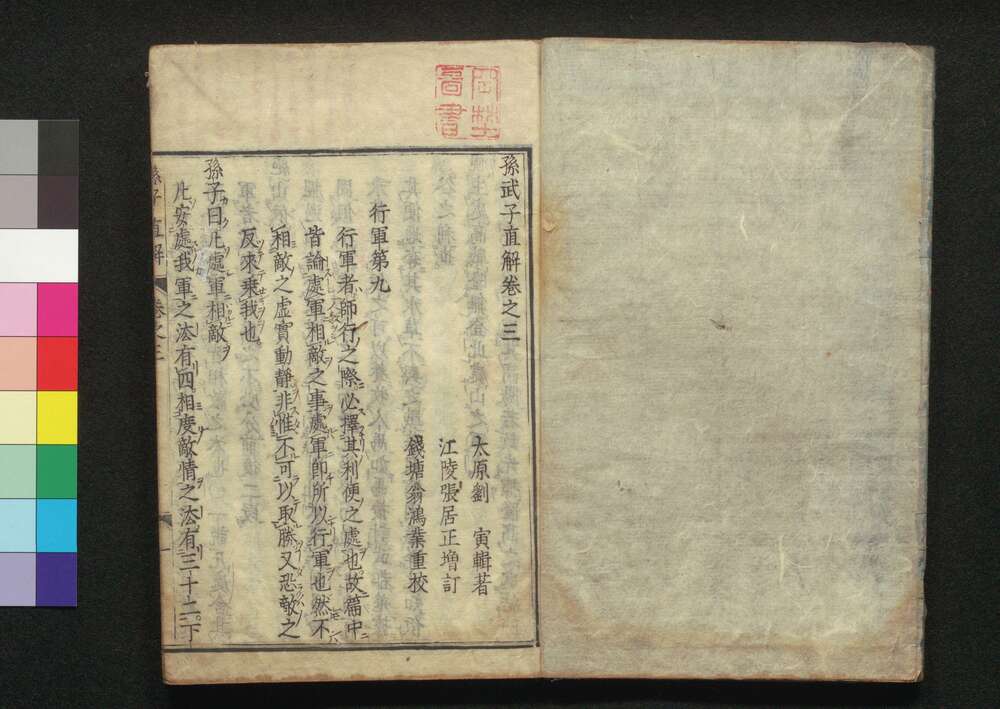 孫武子直解卷之三
太原劉　寅輯著
江陵張居正增訂
錢塘翁鴻業重校
行軍第九
行軍者師行之際必擇其利便之處也故篇中
皆論處軍相敵之事處軍卽所以行軍也然不
相敵之虛實動靜非惟不可以取勝又恐敵之
反來乗我也。
孫子曰凢處軍相敵
凢安處我軍之法有四相度敵情之法有三十二。下
孫子直解　卷之三　一
圖書